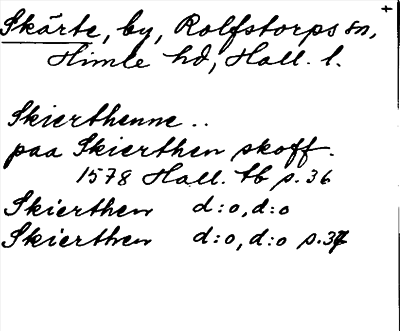 Skärte, by, Rolfstorps sn,
Himle hd, Hall. l.
Skierthenne ..
paa Skierthen skoff.
1578 Hall. tb s. 36
Skierthen d:o, d:o
Skierthen d:o, d:o s. 37